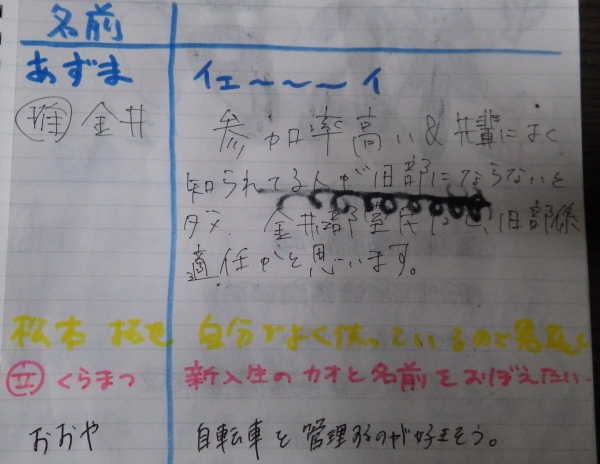 名前
あずま イェ〜〜〜イ
推 金井 参加率高い&先輩によく
知られてる人が旧部にならないと
ダメ. 金井部室民だし、旧部係
適任かと思います。
松本 拓也 自分でよく使っているので
立 くらまつ 新入生のカオと名前をおぼえたい
おおや 自転車を管理するのが好きそう。